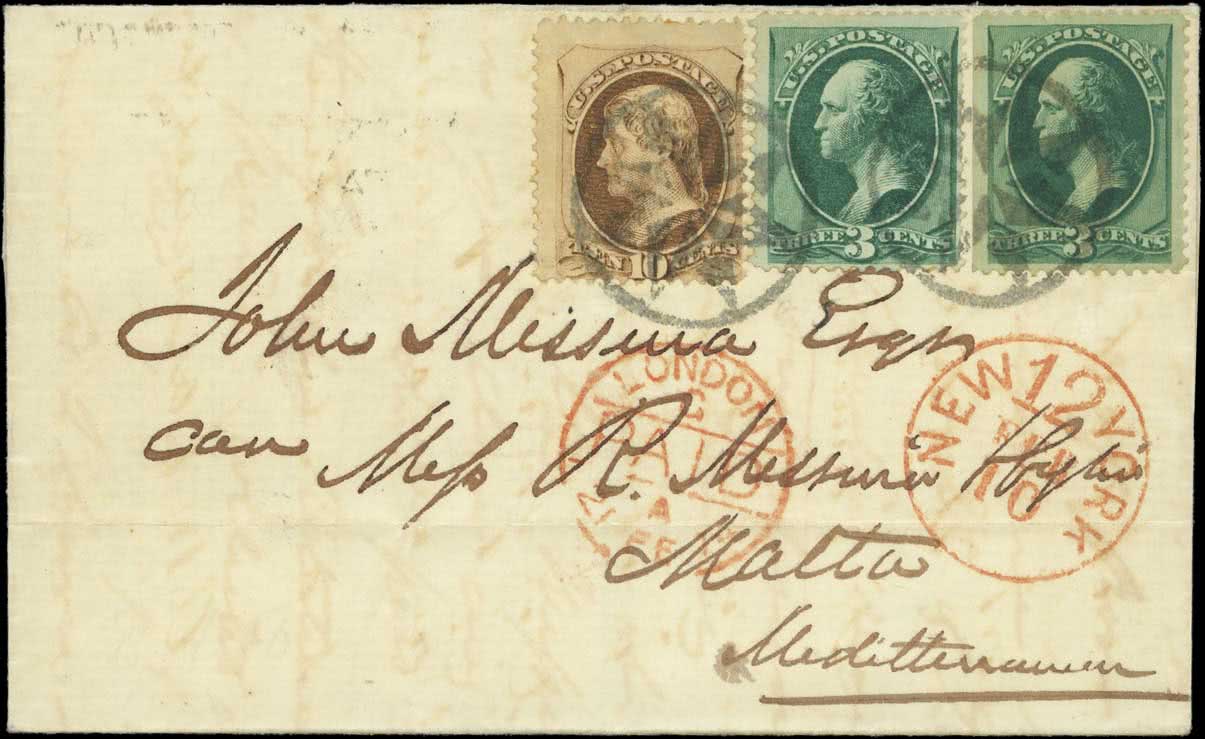 U.S. POSTAGE
TEN 10 CENTS
U.S. POSTAGE
THREE 3 CENTS
U.S. POSTAGE
THREE 3 CENTS
John Messina Esqr
care Mess R. Messina
Malta
Mediterranean
LONDON
PAID
NEW YORK
12
10